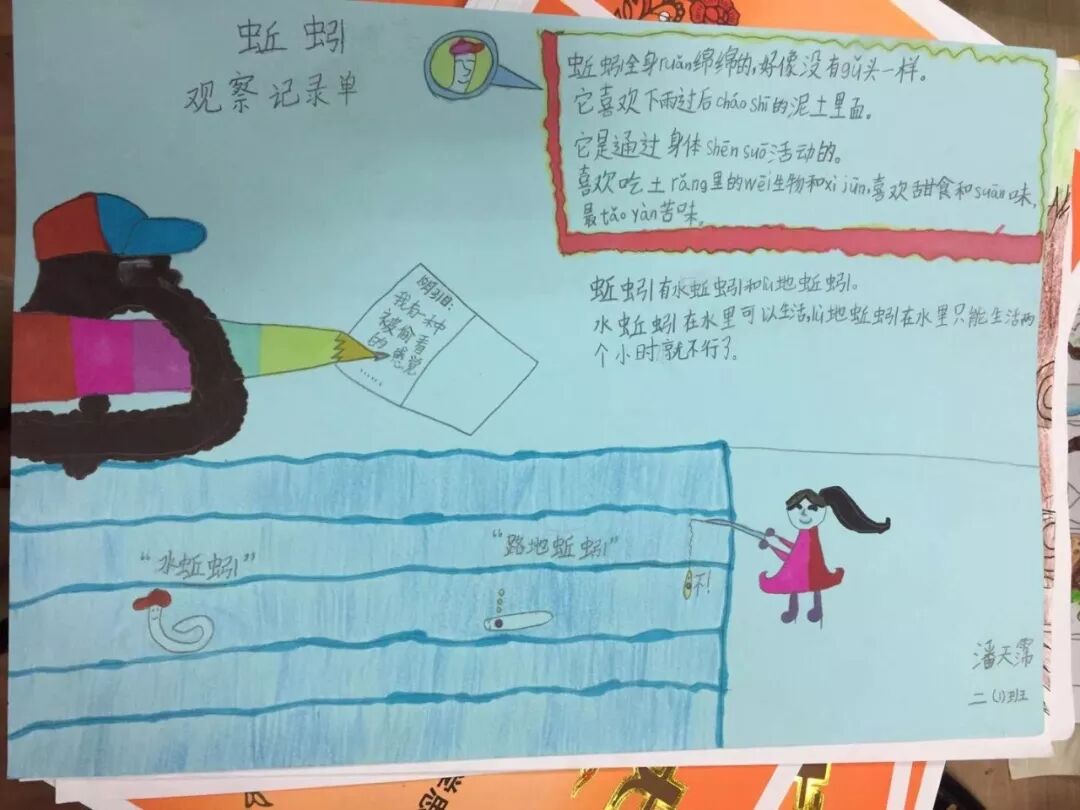 蚯蚓
观察记录单
蚯蚓全身ruǎn绵绵的,好像没有gǔ头一样。
它喜欢下雨过后cháo shī的泥土里面。
它是通过身体shēn suō活动的。
喜欢吃土rǎng里的wēi生物和xì jūn,喜欢甜食和suān味,
最tǎo yàn苦味。
蚯蚓有水蚯蚓和lù地蚯蚓。
水蚯蚓在水里可以生活,lù地蚯蚓在水里只能生活两
个小时就不行了。
我有一种
被偷看
的感觉
……
“水蚯蚓”
“路地蚯蚓”
不!
潘天霈
二(1)班